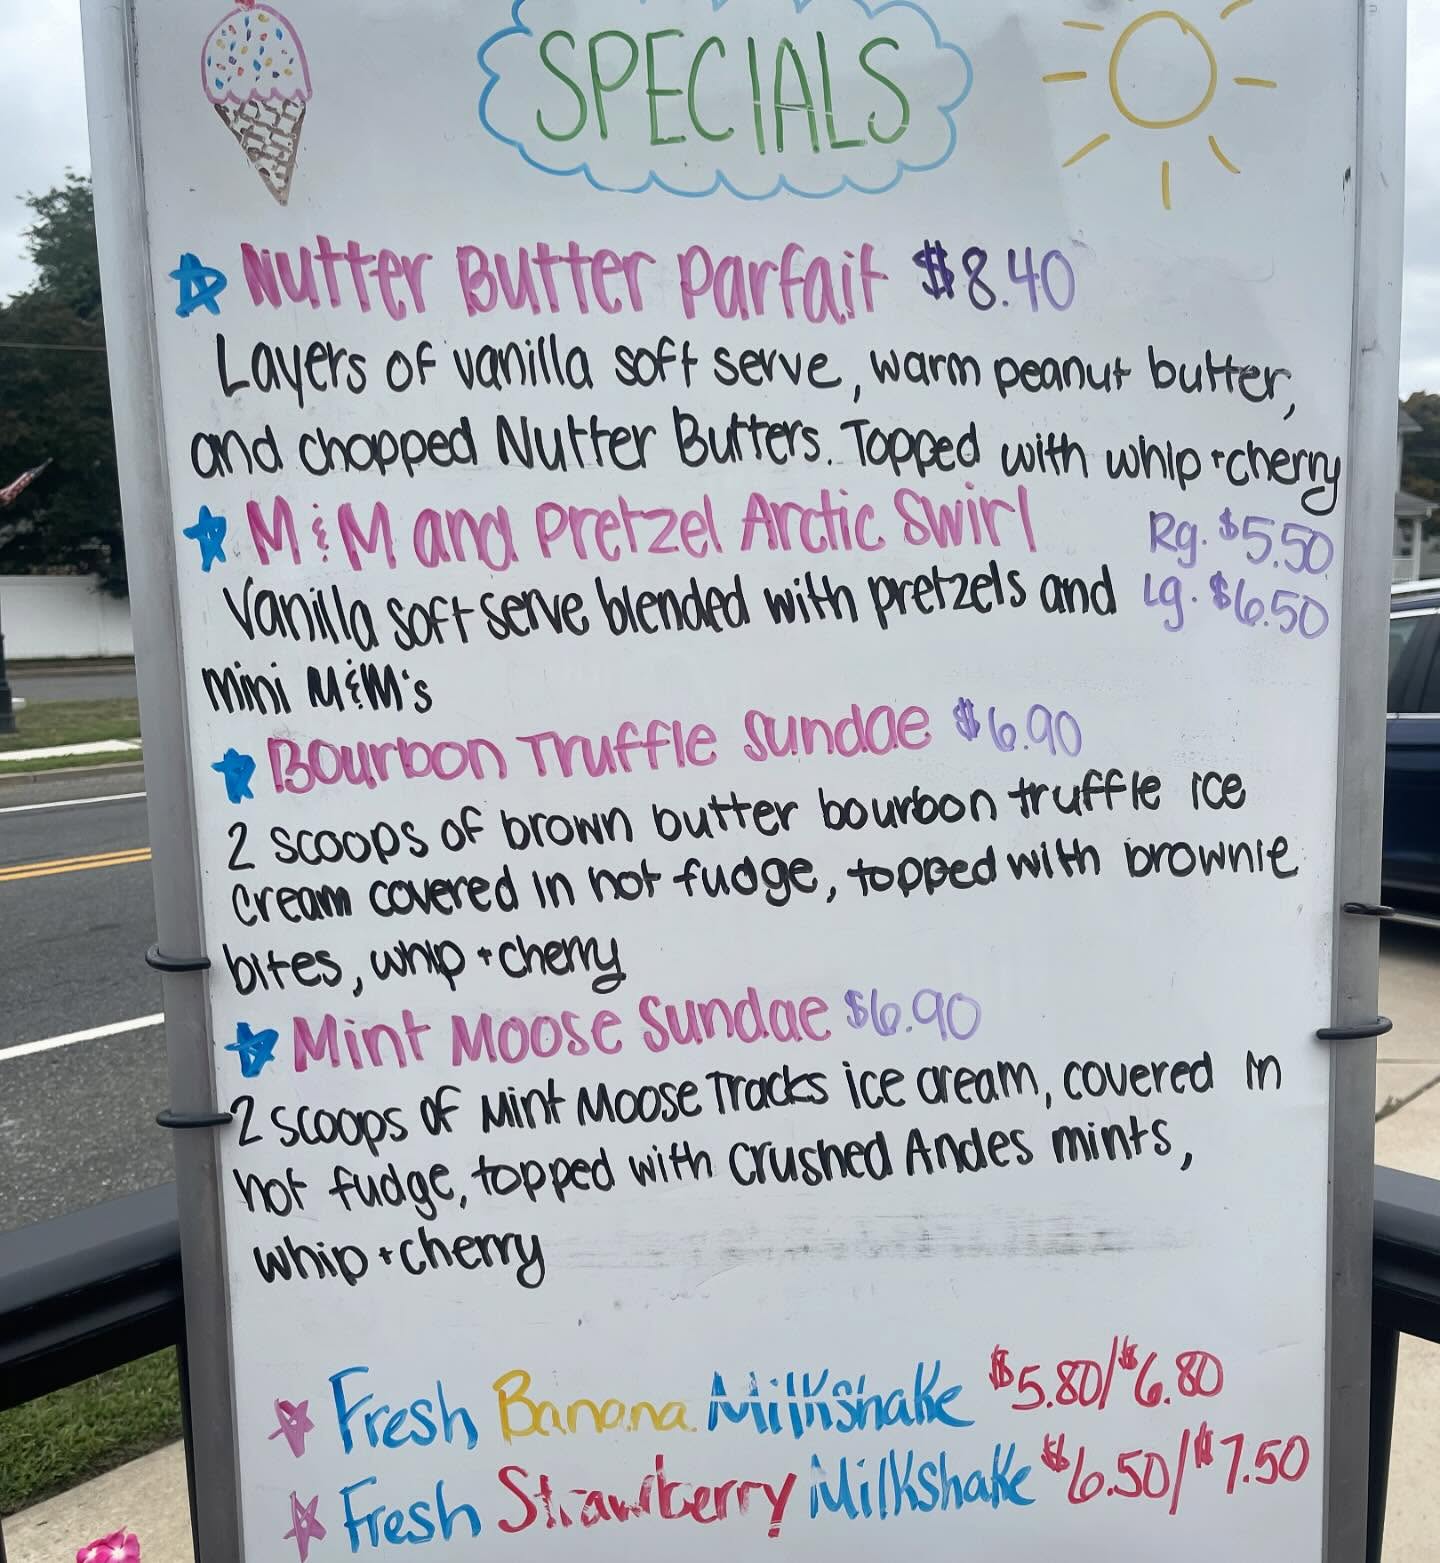 SPECIALS
Nutter Butter Parfait $8.40
Layers of vanilla soft serve, warm peanut butter,
and chopped Nutter Butters. Topped with whip + cherry
M&M and Pretzel Arctic Swirl Rg. $5.50
Vanilla soft serve blended with pretzels and Lg. $6.50
mini M&M's
Bourbon Truffle Sundae $6.90
2 scoops of brown butter bourbon truffle ice
cream covered in hot fudge, topped with brownie
bites, whip + cherry
Mint Moose Sundae $6.90
2 scoops of Mint Moose Tracks ice cream, covered in
hot fudge, topped with crushed Andes mints,
whip + cherry
Fresh Banana Milkshake $5.80/$6.80
Fresh Strawberry Milkshake $6.50/$7.50